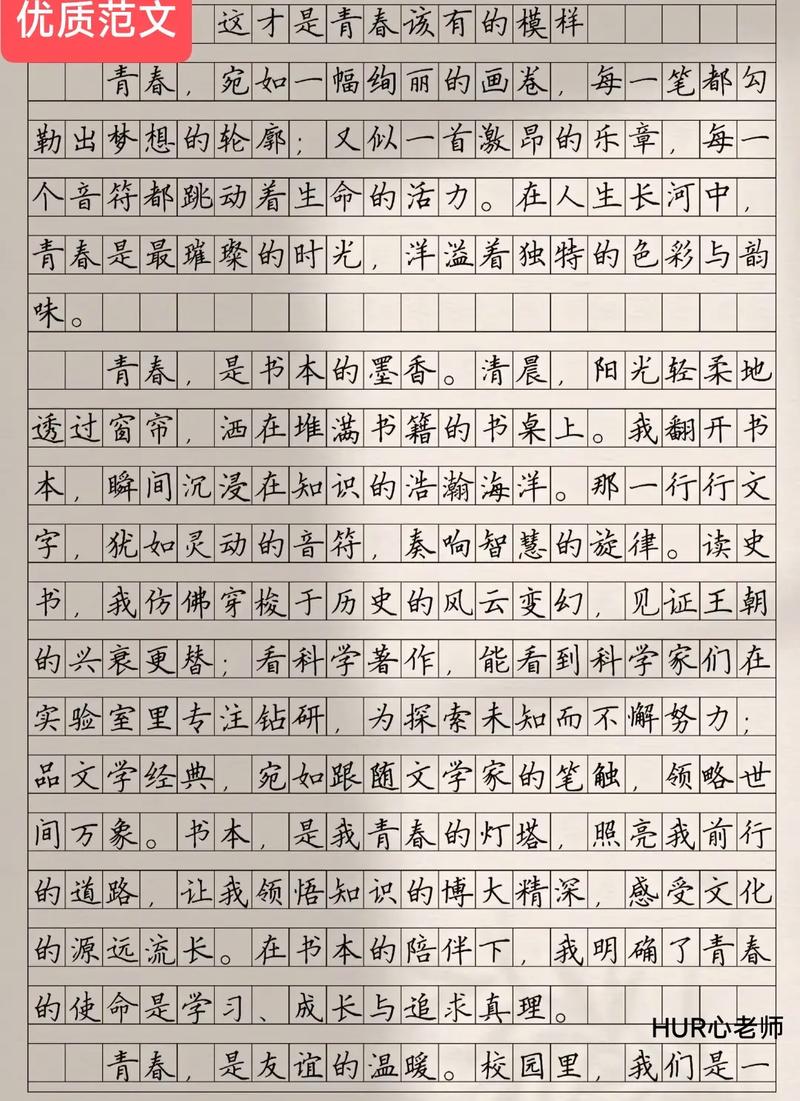 优质范文
这才是青春该有的模样
青春，宛如一幅绚丽的画卷，每一笔都勾
勒出梦想的轮廓；又似一首激昂的乐章，每一
个音符都跳动着生命的活力。在人生长河中，
青春是最璀璨的时光，洋溢着独特的色彩与韵
味。
青春，是书本的墨香。清晨，阳光轻柔地
透过窗帘，洒在堆满书籍的书桌上。我翻开书
本，瞬间沉浸在知识的浩瀚海洋。那一行行文
字，犹如灵动的音符，奏响智慧的旋律。读史
书，我仿佛穿梭于历史的风云变幻，见证王朝
的兴衰更替；看科学著作，能看到科学家们在
实验室里专注钻研，为探索未知而不懈努力；
品文学经典，宛如跟随文学家的笔触，领略世
间万象。书本，是我青春的灯塔，照亮我前行
的道路，让我领悟知识的博大精深，感受文化
的源远流长。在书本的陪伴下，我明确了青春
的使命是学习、成长与追求真理。
HUR心老师
青春，是友谊的温暖。校园里，我们是一